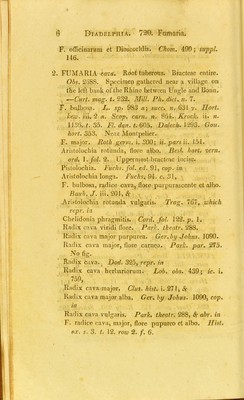 6 DIADELPHIA. 720. Fumaria.
F. officinarum et Dioscoridis. Chem. 490; suppl.
146.
2. FUMARIA cava. Root tuberous. Bracteae entire.
Obs. 2588. Specimen gathered near a village on
the left bank of the Rhine between Ungle and Bonn.
—Curt. mag. t. 232. Mill. Ph. dict. n. 7.
F. bulbosa. L. sp. 983 a; succ. n. 631 γ. Hort.
kew. iii. 2 α. Scop. carn. n. 864. Krock. ii. n.
1136. t. 35. Fl. dan. t. 605. Dalech. 1293. Gou.
hort. 353. Near Montpelier.
F. major. Roth germ. i. 300; ii. pars ii. 151.
Aristolochia rotunda, flore albo. Besl. hort. vern.
ord. 1. fol. 2. Uppermost bracteae incise.
Pistolochia. Fuchs. fol. ed. 91, cop. in
Aristolochia longa. Fuchs. 94. c. 31,
F. bulbosa, radice cava, flore purpurascente et albo.
Bauh. J. iii. 201, &
Aristolochia rotunda vulgaris. Trag. 767, which
repr. in
Chelidonia phragmitis. Cord. fol. 122. p. 1.
Radix cava viridi flore. Park. theatr. 288.
Radix cava major purpurea. Ger. by Johns. 1090.
Radix cava major, flore carneo. Park. par. 275.
No fig.
Radix cava. Dod. 325, repr. in
Radix cava herbariorum. Lob. obs. 439; ic. i.
759,
Radix cava major. Clus. hist. i. 271, &
Radix cava major alba. Ger. by Johns. 1090, cop.
in
Radix cava vulgaris. Park. theatr. 288, & abr. in
F. radice cava, major, flore pupureo et albo. Hist.
ox. s. 3. t. 12. row 2. f. 6.